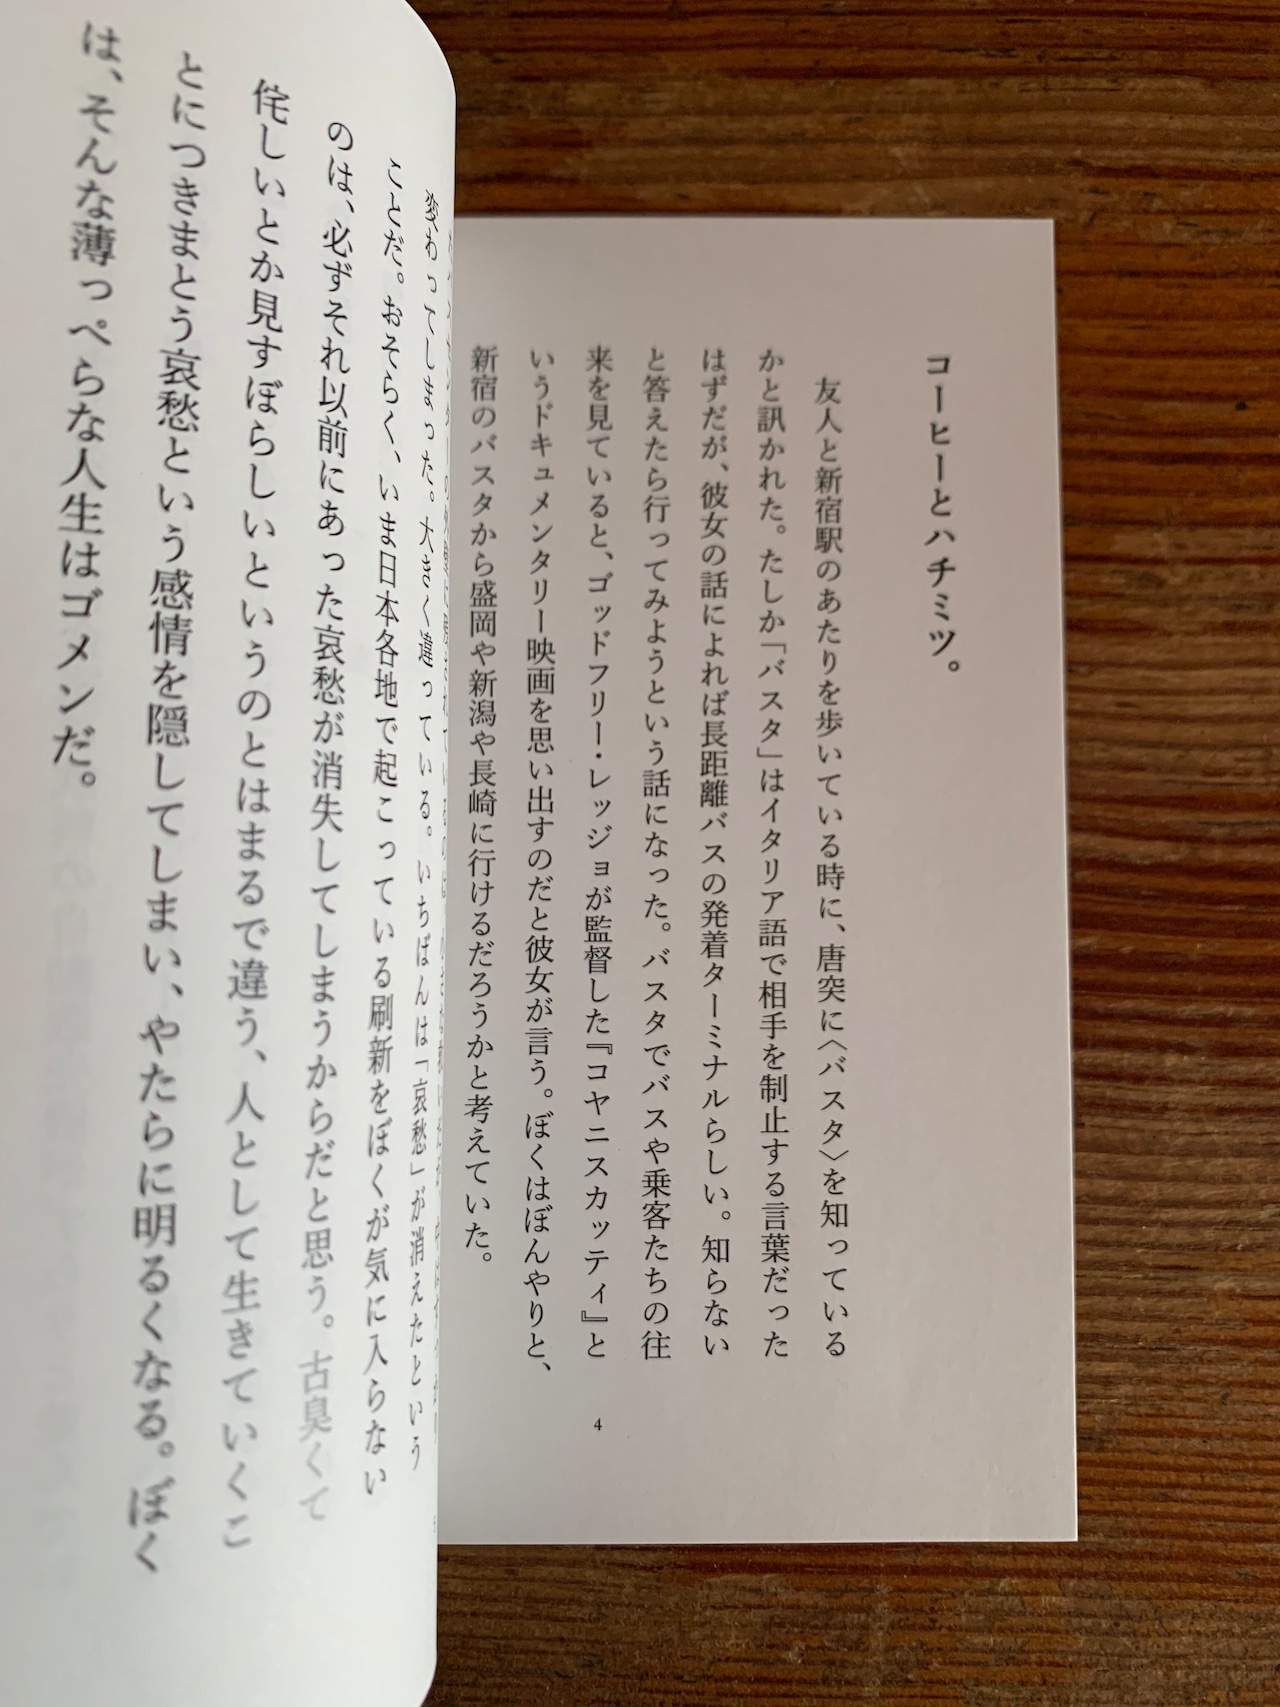 コーヒーとハチミツ。
友人と新宿駅のあたりを歩いている時に、唐突に〈バスタ〉を知っている
かと訊かれた。たしか「バスタ」はイタリア語で相手を制止する言葉だった
はずだが、彼女の話によれば長距離バスの発着ターミナルらしい。知らない
と答えたら行ってみようという話になった。バスタでバスや乗客たちの往
来を見ていると、ゴッドフリー・レッジョが監督した『コヤニスカッティ』と
いうドキュメンタリー映画を思い出すのだと彼女が言う。ぼくはぼんやりと、
新宿のバスタから盛岡や新潟や長崎に行けるだろうかと考えていた。
4
変わってしまった。大きく違っている。いちばんは「哀愁」が消えたという
ことだ。おそらく、いま日本各地で起こっている刷新をぼくが気に入らない
のは、必ずそれ以前にあった哀愁が消失してしまうからだと思う。古臭くて
侘しいとか見すぼらしいというのとはまるで違う、人として生きていくこ
とにつきまとう哀愁という感情を隠してしまい、やたらに明るくなる。ぼく
は、そんな薄っぺらな人生はゴメンだ。